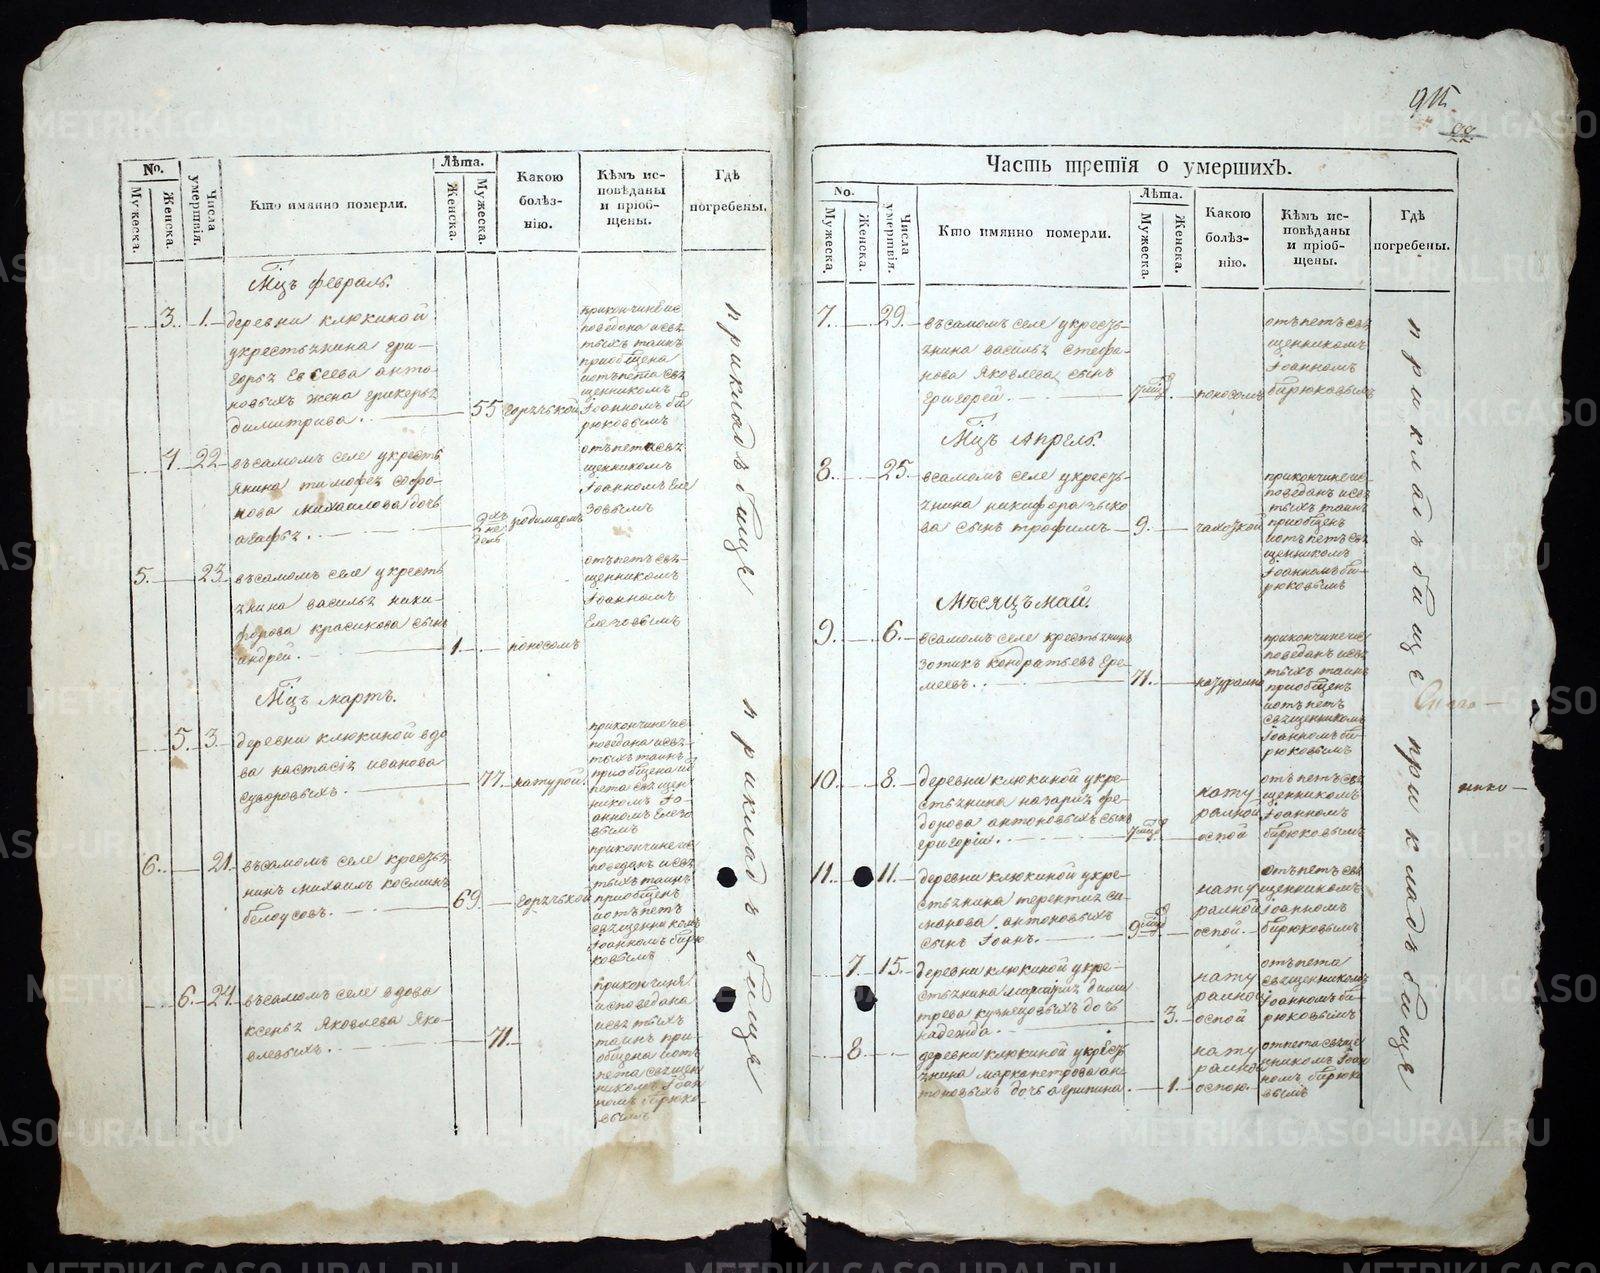 No.
Мужеска.
Женска.
Числа умертвія.
Кто имянно померли.
Лѣта.
Женска.
Мужеска.
Какою
болѣз-
нію.
Кѣмъ ис-
повѣданы
и пріоб-
щены.
Гдѣ
погребены.
Мцъ февраль.
3. 1.
деревни клюкиной
укрестьянина гри-
горья Евсеева анто-
новыхъ жена
димитрива. 55 горячькой
прикончине ис
поведана исвя
тыхъ таинъ
приобщена
иотъпета свя
щенникомъ
Iоанномъ би
рюковымъ
4. 22.
въсамомъ селе укресть
янина тимофея софро-
нова михаилова дочь
агафья. 2хъ не дель родимцомъ
отъпета свя
щенникомъ
Iоанномъ Еле
зовымъ
5. 23.
въсамомъ селе укресть
янина василья ники-
форова красикова сынъ
андрей. 1. поносомъ
отъпетъ свя-
щенникомъ
Iоанномъ
Елезовымъ
Мцъ мартъ.
5. 3.
деревни клюкиной вдо
ва настасія иванова
суворовыхъ. 77. натурой.
прикончине ис
поведана исвя
тыхъ таинъ
приобщена ио
пета священ
никомъ Iо-
анномъ Елезо
вымъ
6. 21.
въсамомъ селе крестья
нинъ михаилъ косминъ
белоусовъ. 69. горячькой
прикончине ис
поведанъ исвя
тыхъ таинъ
приобщенъ
иотъпетъ
священникомъ
Iоанномъ бирю
ковымъ
6. 24.
въсамомъ селе вдова
ксенья Яковлева Яко-
влевыхъ. 71.
прикончиня
исповедана
исвятыхъ
таинъ при-
общена иотъ
пета священ
никомъ Iоан
номъ бирюко-
вымъ
прикладъбище
прикладъбище
915
Часть третія о умершихъ.
No.
Мужеска.
Женска.
Числа умертвія.
Кто имянно померли.
Лѣта.
Мужеска.
Женска.
Какою
болѣз-
нію.
Кѣмъ ис-
повѣданы
и пріоб-
щены.
Гдѣ
погребены.
7. 29.
въсамомъ селе укресть-
янина василья стефа-
нова Яковлева сынъ
григорей. 7 мцо поносомъ
отъпетъ свя
щенникомъ
Iоанномъ
бирюковымъ
Мцъ Апрель.
8. 25.
всамомъ селе укресть-
янина никифора зыко
ва сынъ трофимъ 9. чахоткой
прикончине ис
поведанъ исвя
тыхъ таинъ
приобщенъ
иотъпетъ свя
щенникомъ
Iоанномъ би-
рюковымъ
Мѣсяцъ май.
9. 6.
всамомъ селе крестьянинъ
зотикъ кондратьевъ Ере-
меевъ. 71. натурално
прикончине ис
поведанъ исвя
тыхъ таинъ
приобщенъ
иотъпетъ
священникомъ
Iоанномъ би-
рюковымъ
10. 8.
деревни клюкиной укре-
стьянина назарія фе-
дорова антоновыхъ сынъ
григорій. 7 мцо
нату
ралной
оспой
отъпетъ свя
щенникомъ
Iоанномъ
бирюковымъ
11. 11.
деревни клюкиной укре-
стьянина терентія си-
манова антоновыхъ
сынъ Iоанъ. 9 мцо
нату
ралной
оспой.
отъпетъ свя
щенникомъ
Iоанномъ
бирюковымъ
7. 15.
деревни клюкиной укре-
стьянина дими
трева кузнецовыхъ дочь
надежда. 3.
нату
ралной
оспой
отъпета
священникомъ
Iоанномъ би-
рюковымъ
8.
деревни клюкиной укресть
янина марка петрова ан-
тоновыхъ дочь агрипина. 1.
нату
ралной
оспою.
отпета свяще
нникомъ Iоан
номъ бирюко
вымъ
прикладъбище прикладъбище
METRIKI.GASO-URAL.RU